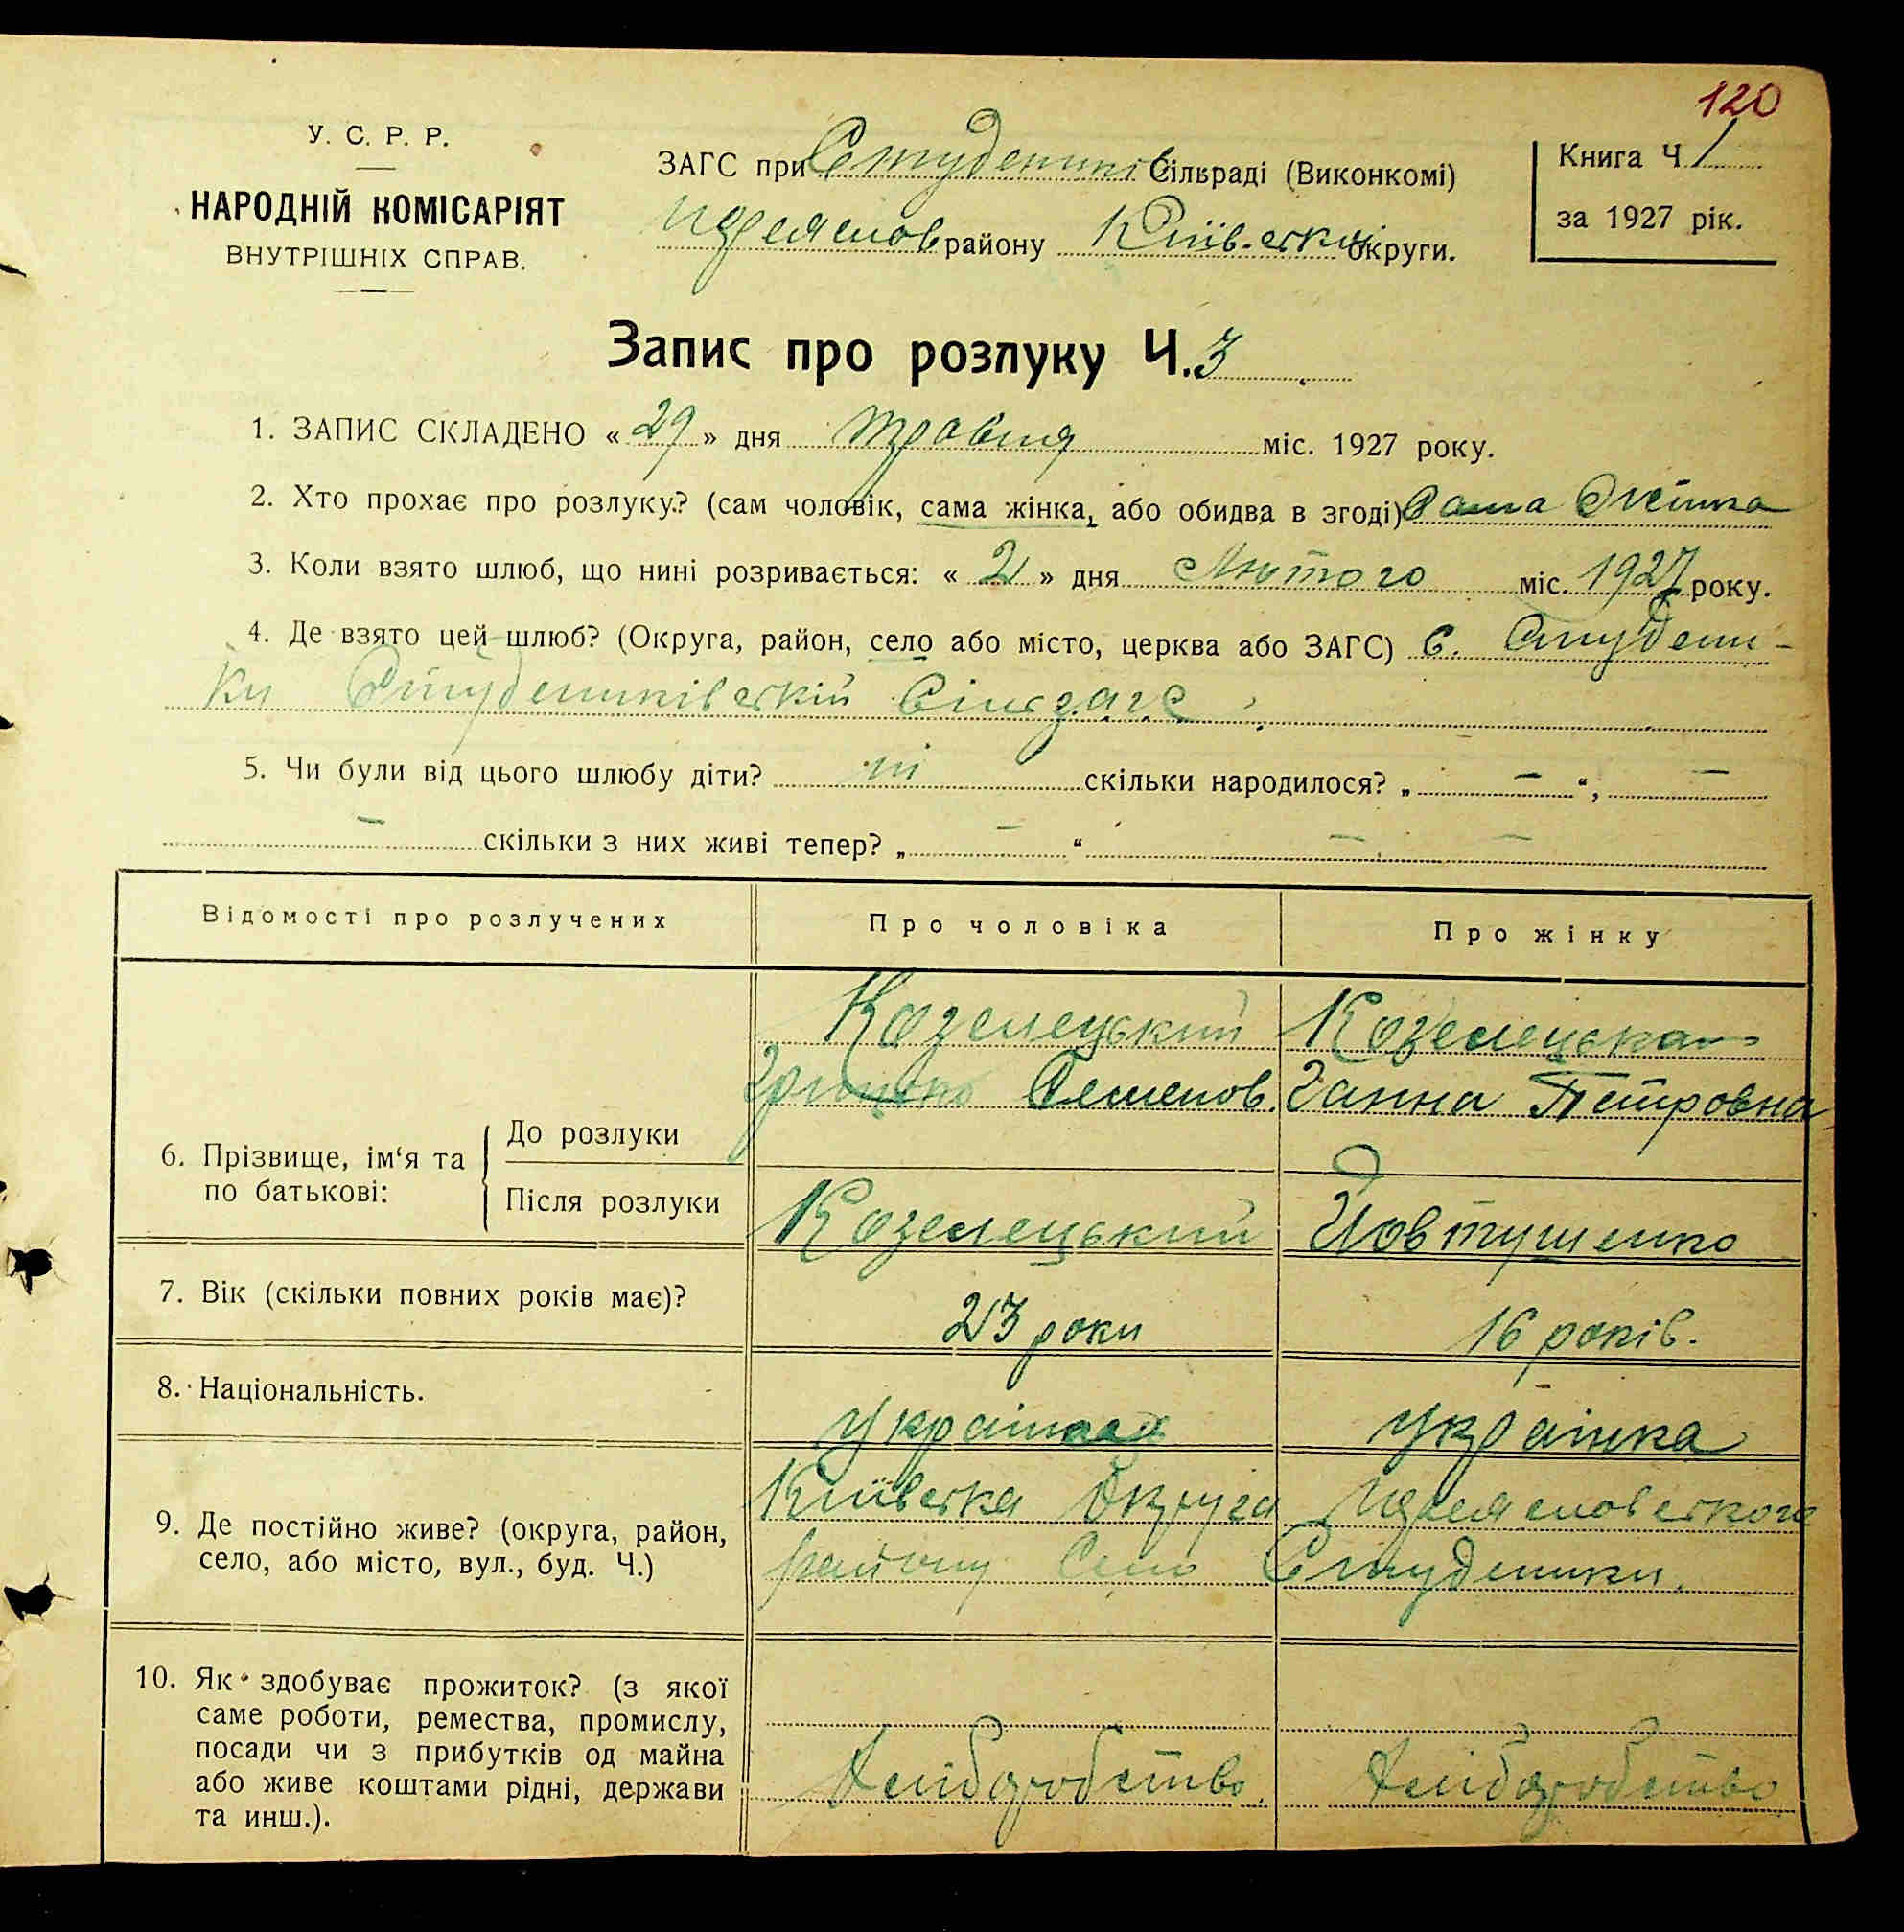 120
У. С. Р. Р.
НАРОДНІЙ КОМІСАРІЯТ
ВНУТРІШНІХ СПРАВ.
ЗАГС при Студеників Сільраді (Виконкомі)
Переяслов району Київ-ської округи.
Книга Ч 1
за 1927 рік.
Запис про розлуку Ч. 3
1. ЗАПИС СКЛАДЕНО «29» дня травня міс. 1927 року.
2. Хто прохає про розлуку? (сам чоловік, сама жінка, або обидва в згоді) Сама Жінка
3. Коли взято шлюб, що нині розривається: «2» дня Лютого міс. 1927 року.
4. Де взято цей шлюб? (Округа, район, село або місто, церква або ЗАГС) С. Студени-
ки Студениківській Сільзагс
5. Чи були від цього шлюбу діти? ні скільки народилося? „ — “, —
— скільки з них живі тепер? „ — “ — —
Відомості про розлучених Про чоловіка Про жінку
Козелецький Козелецька
Грицько Семенов. Ганна Петровна
6. Прізвище, ім‘я та по батькові: До розлуки
Після розлуки Козелецький Йовтушенко
7. Вік (скільки повних років має)? 23 роки 16 років.
8. Національність. Українец Українка
9. Де постійно живе? (округа, район, Київска Округа Переясловского
село, або місто, вул., буд. Ч.) району Село Студеники.
10. Як здобуває прожиток? (з якої
саме роботи, ремества, промислу,
посади чи з прибутків од майна
або живе коштами рідні, держави Хліборобство Хліборобство
та инш.).